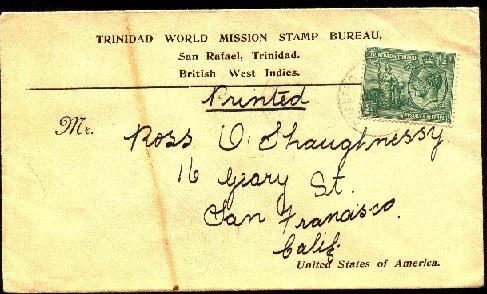 TRINIDAD WORLD MISSION STAMP BUREAU,
San Rafael, Trinidad.
British West Indies.
Printed
Mr. Ross O'Shaughnessy
16 Geary St.
San Francisco.
Calif.
United States of America.